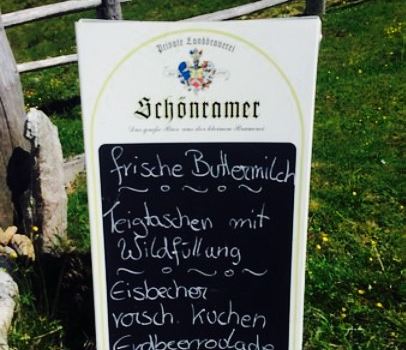 Private Landbrauerei
Schönramer
Das große Bier aus der kleinen Brauerei
frische Buttermilch
Teigtaschen mit
Wildfüllung
Eisbecher
versch. Kuchen
Erdbeerroulade